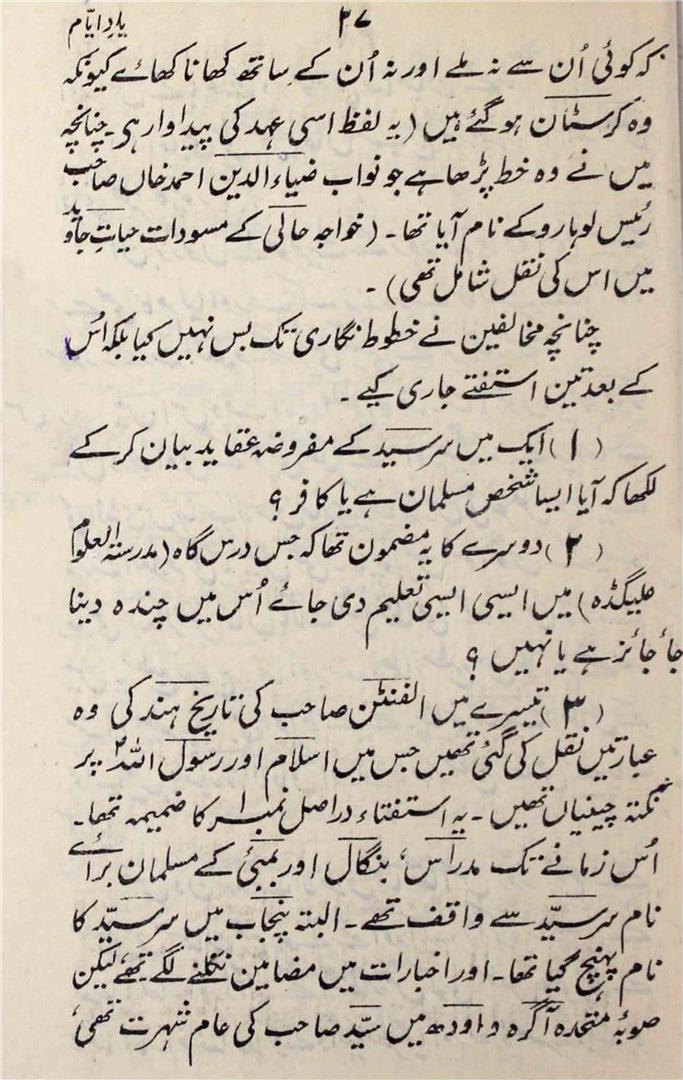 یادِ ایّام
۳۷
کہ کوئی اُن سے نہ ملے اور نہ اُن کے ساتھ کھانا کھائے کیونکہ
وہ کرسٹان ہو گئے ہیں (یہ لفظ اسی عہد کی پیداوار ہی۔ چنانچہ
میں نے وہ خط پڑھا ہے جو نواب ضیاء الدین احمد خاں صاحب
رئیس لوہارو کے نام آیا تھا۔ (خواجہ حالی کے مسودات حیاتِ جاوید
میں اس کی نقل شامل تھی)۔
چنانچہ مخالفین نے خطوط نگاری تک بس نہیں کیا بلکہ اُس
کے بعد تین استفتے جاری کیے۔
(۱) ایک میں سرسید کے مفروضہ عقاید بیان کر کے
لکھا کہ آیا ایسا شخص مسلمان ہے یا کافر؟
(۲) دوسرے کا یہ مضمون تھا کہ جس درس گاہ (مدرستہ العلوم
علیگڈہ) میں ایسی ایسی تعلیم دی جائے اُس میں چندہ دینا
جأ جائز ہے یا نہیں ؟
(۳) تیسرے میں الفنٹن صاحب کی تاریخ ہند کی وہ
عبارتیں نقل کی گئی تھیں جس میں اسلام اور رسول اللہؐ پر
نکتہ چینیاں تھیں۔ یہ استفتاء دراصل نمبر ۱ کا ضمیمہ تھا۔
اُس زمانے تک مدراس، بنگال اور بمبئی کے مسلمان برائے
نام سرسیّد سے واقف تھے۔ البتہ پنجاب میں سرسیّد کا
نام پہنچ گیا تھا۔ اور اخبارات میں مضامین نکلنے لگے تھے، لیکن
صوبۂ متحدہ آگرہ و اودھ میں سیّد صاحب کی عام شہرت تھی،